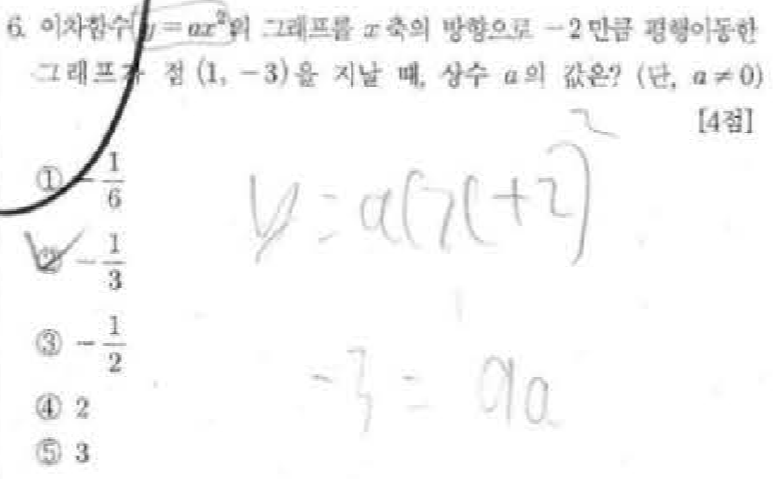 6. 이차함수 y=ax²의 그래프를 x축의 방향으로 -2만큼 평행이동한
그래프가 점 (1, -3)을 지날 때, 상수 a의 값은? (단, a≠0)
[4점]
① -1/6
② -1/3
③ -1/2
④ 2
⑤ 3
y=a(x+2)²
-3=9a